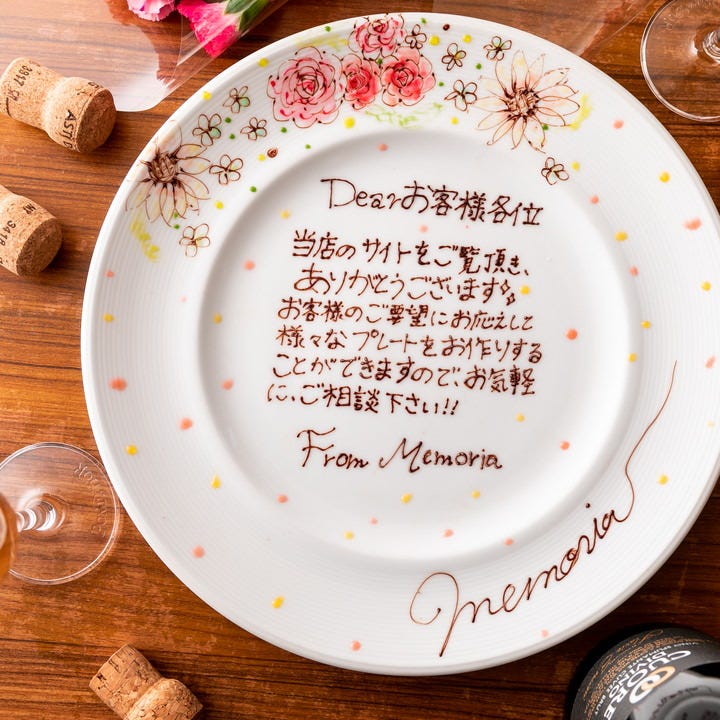 Dearお客様各位
当店のサイトをご覧頂き、
ありがとうございます✨
お客様のご要望にお応えして
様々なプレートをお作りする
ことができますので、お気軽
に、ご相談下さい!!
From Memoria
memoria
CUORE
DIVINO
3417
ASTI